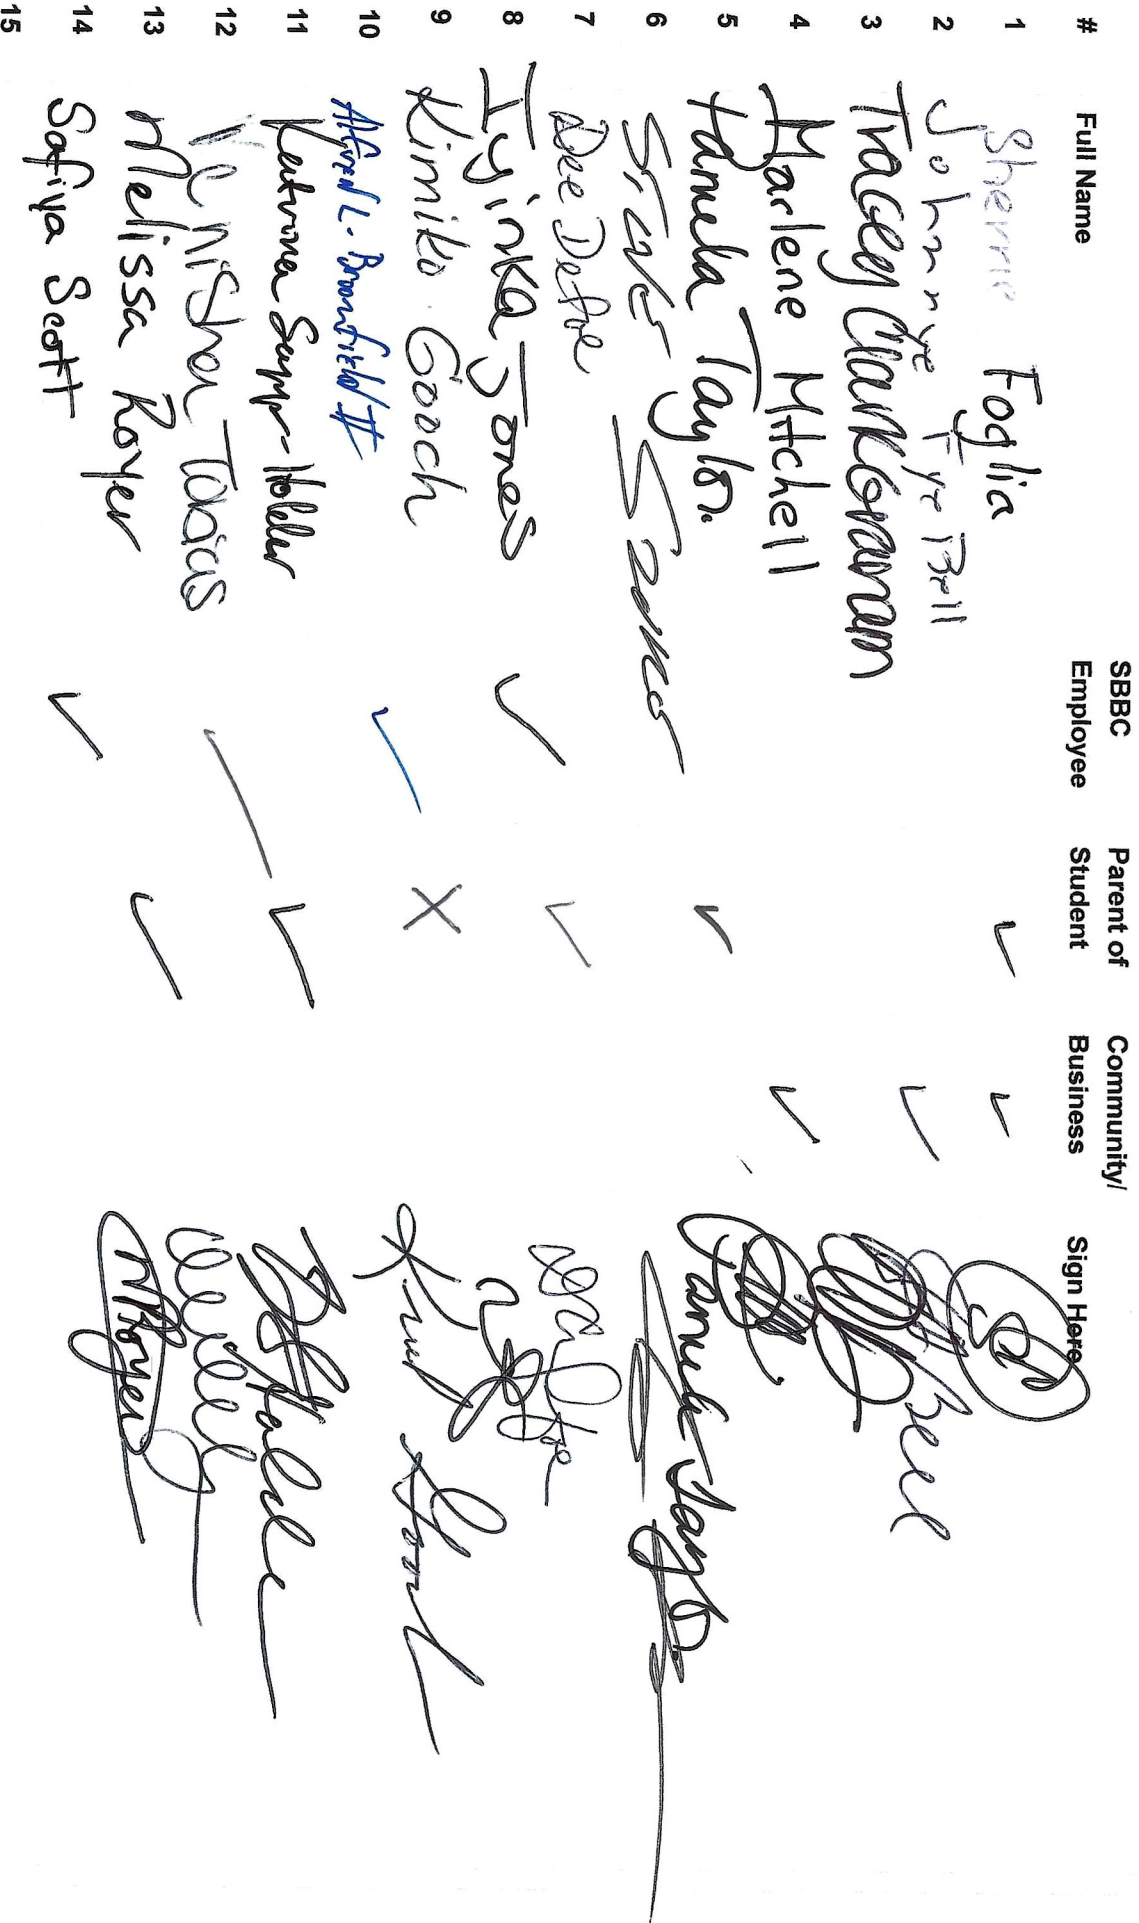 # Full Name SBBC Employee Parent of Student Community/ Business Sign Here
1 Sherrie Foglia ✓ ✓
2 Johnnye Fye Bell ✓ Bell
3 Tracey Clark
4 Marlene Mitchell ✓
5 Pamela Taylor ✓ Pamela Taylor
6
7 Dee Defoe ✓
8 Iyinka Jones ✓
9 Kimiko Gooch X
10 L. Broomfield II ✓
11 Katrina Sapp-Holder ✓
12 Tobias ✓
13 Melissa Royer ✓ MRoyer
14 Safiya Scott ✓
15